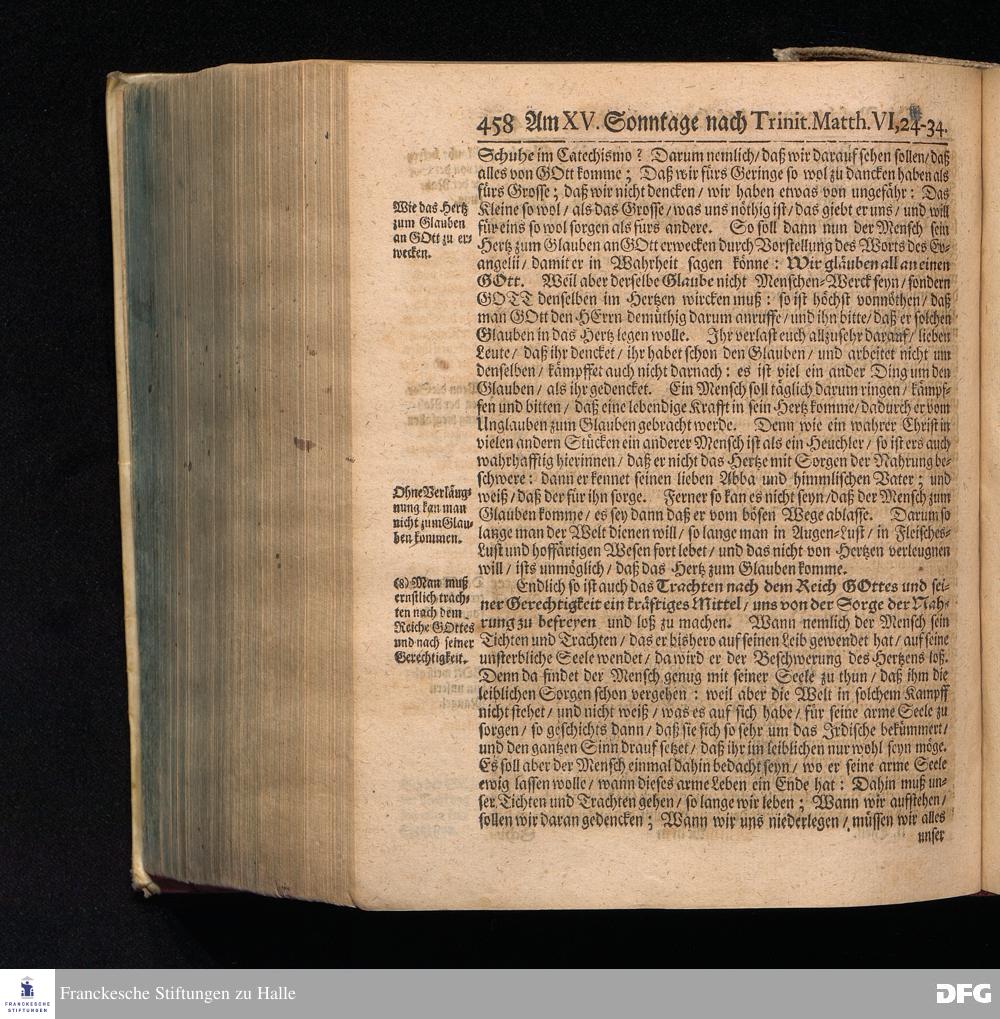 458 Am XV. Sonntage nach Trinit. Matth. VI, 24-34.
Schuhe im Catechismo? Darum nemlich/ daß wir darauf sehen sollen/ daß
alles von GOtt komme; Daß wir fürs Geringe so wol zu dancken haben als
fürs Grosse; daß wir nicht dencken/ wir haben etwas von ungefähr: Das
Kleine so wol/ als das Grosse/ was uns nöthig ist/ das giebt er uns/ und will
für eins so wol sorgen als fürs andere. So soll dann nun der Mensch sein
Hertz zum Glauben an GOtt erwecken durch Vorstellung des Worts des Ev-
angelii/ damit er in Wahrheit sagen könne: Wir gläuben all an einen
GOtt. Weil aber derselbe Glaube nicht Menschen-Werck seyn/ sondern
GOTT denselben im Hertzen wircken muß: so ist höchst vonnöthen/ daß
man GOtt den HErrn demüthig darum anruffe/ und ihn bitte/ daß er solchen
Glauben in das Hertz legen wolle. Ihr verlast euch allzusehr darauf/ lieben
Leute/ daß ihr dencket/ ihr habet schon den Glauben/ und arbeitet nicht um
denselben/ kämpffet auch nicht darnach: es ist viel ein ander Ding um den
Glauben/ als ihr gedencket. Ein Mensch soll täglich darum ringen/ kämpf-
fen und bitten/ daß eine lebendige Krafft in sein Hertz komme/ dadurch er vom
Unglauben zum Glauben gebracht werde. Denn wie ein wahrer Christ in
vielen andern Stücken ein anderer Mensch ist als ein Heuchler/ so ist ers auch
wahrhafftig hierinnen/ daß er nicht das Hertze mit Sorgen der Nahrung be-
schwere: dann er kennet seinen lieben Abba und himmlischen Vater; und
weiß/ daß der für ihn sorge. Ferner so kan es nicht seyn/ daß der Mensch zum
Glauben komme/ es sey dann daß er vom bösen Wege ablasse. Darum so
lange man der Welt dienen will/ so lange man in Augen-Lust/ in Fleisches-
Lust und hoffärtigen Wesen fort lebet/ und das nicht von Hertzen verleugnen
will/ ists unmöglich/ daß das Hertz zum Glauben komme.
Endlich so ist auch das Trachten nach dem Reich GOttes und sei-
ner Gerechtigkeit ein kräftiges Mittel/ uns von der Sorge der Nah-
rung zu befreyen und loß zu machen. Wann nemlich der Mensch sein
Tichten und Trachten/ das er bishero auf seinen Leib gewendet hat/ auf seine
unsterbliche Seele wendet/ da wird er der Beschwerung des Hertzens loß.
Denn da findet der Mensch genug mit seiner Seele zu thun/ daß ihm die
leiblichen Sorgen schon vergehen: weil aber die Welt in solchem Kampff
nicht stehet/ und nicht weiß/ was es auf sich habe/ für seine arme Seele zu
sorgen/ so geschichts dann/ daß sie sich so sehr um das Irdische bekümmert/
und den gantzen Sinn drauf setzet/ daß ihr im leiblichen nur wohl seyn möge.
Es soll aber der Mensch einmal dahin bedacht seyn/ wo er seine arme Seele
ewig lassen wolle/ wann dieses arme Leben ein Ende hat: Dahin muß un-
ser Tichten und Trachten gehen/ so lange wir leben; Wann wir aufstehen/
sollen wir daran gedencken; Wann wir uns niederlegen/ müssen wir alles
unser
Wie das Hertz
zum Glauben
an GOtt zu er-
wecken.
Ohne Verläug-
nung kan man
nicht zum Glau-
ben kommen.
(8) Man muß
ernstlich trach-
ten nach dem
Reiche GOttes
und nach seiner
Gerechtigkeit.
FRANCKESCHE
STIFTUNGEN
Franckesche Stiftungen zu Halle
DFG